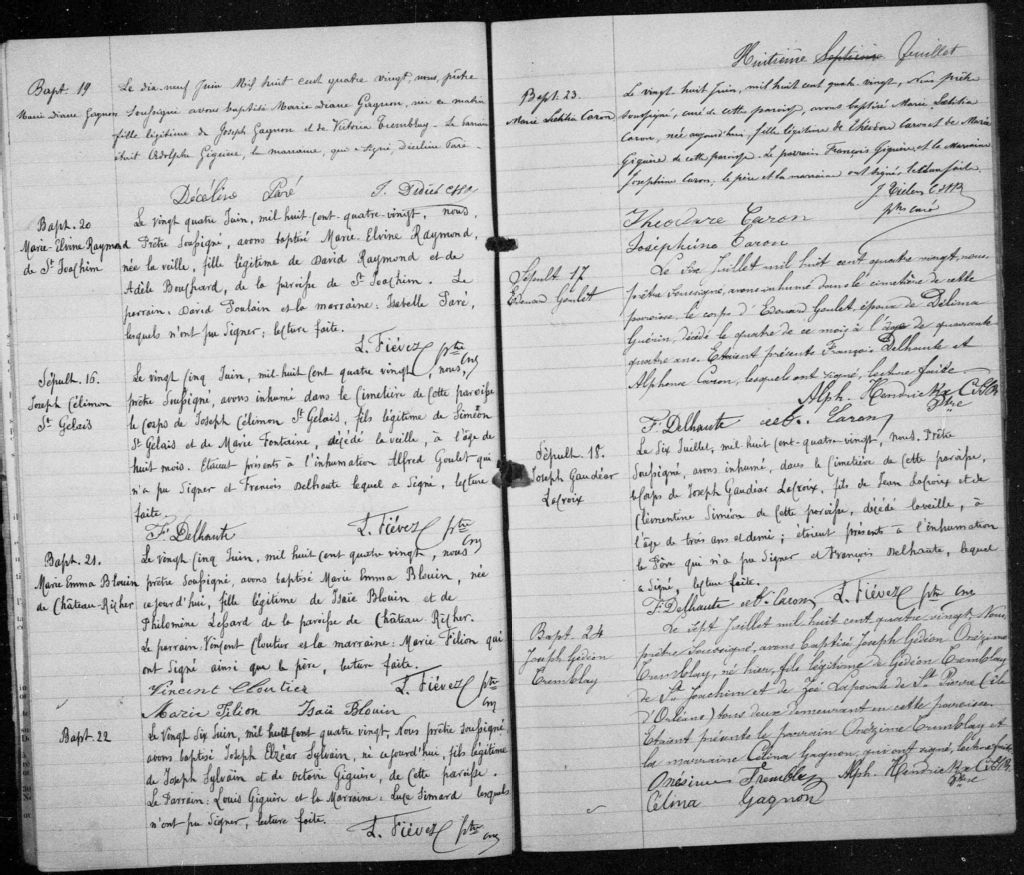 Bapt. 19
Marie Diane Gagnon
Le dix-neuf Juin Mil huit cent quatre vingt, nous, prêtre
Soussigné avons baptisé Marie Diane Gagnon, née ce matin
fille légitime de Joseph Gagnon et de Victoria Tremblay. Le parrain
était Adolphe Giguère, la marraine, qui a signé, Décéline Paré.
Décéline Paré
Bapt. 20
Marie-Elvine Raymond
de St Joachim
Le vingt quatre Juin, mil huit cent-quatre-vingt, nous,
Prêtre Soussigné, avons baptisé Marie-Elvine Raymond,
née la veille, fille légitime de David Raymond et de
Adèle Bouchard, de la paroisse de St Joachim. Le
parrain: David Poulain et la marraine: Isabelle Paré,
lesquels n'ont pu Signer; lecture faite.
L. Fiévez ptre
Sépult. 16.
Joseph Célimon
St Gelais
Le vingt Cinq Juin, mil huit Cent quatre vingt, nous,
prêtre Soussigné, avons inhumé dans le Cimetière de Cette paroisse
le Corps de Joseph Célimon St Gelais, fils légitime de Siméon
St Gelais et de Marie Fontaine, décédé la veille, à l'âge de
huit mois. Etaient présents à l'inhumation Alfred Goulet qui
n'a pu Signer et Francois Delhaute lequel a Signé, lecture
faite.
F. Delhaute L. Fiévez ptre
Bapt. 21.
Marie Emma Blouin
de Château-Richer
Le vingt Cinq Juin, mil huit Cent quatre vingt, nous
prêtre Soussigné, avons baptisé Marie Emma Blouin, née
cejourd'hui, fille légitime de Isaïe Blouin et de
Philomine Lepard de la paroisse de Château Richer.
Le parrain: Vincent Cloutier et la marraine: Marie Filion qui
ont Signé ainsi que le père, lecture faite.
Vincent Cloutier L. Fiévez ptre
Marie Filion Isaïe Blouin
Bapt 22
Le Vingt Six Juin, mil huit cent quatre vingt, Nous Prêtre soussigné,
avons baptisé Joseph Elzéar Sylvain, né cejourd'hui, fils légitime
de Joseph Sylvain et de Octavie Giguère, de Cette paroisse.
Le Parrain: Louis Giguère et la Marraine: Luce Simard lesquels
n'ont pu Signer, lecture faite.
L. Fiévez ptre
Huitième Septième feuillet
Bapt. 23.
Marie Lætitia Caron
Le vingt huit Juin, mil huit cent quatre vingt, Nous prêtre
soussigné, curé de cette paroisse, avons baptisé Marie Lætitia
Caron, née aujourd'hui, fille légitime de Théodore Caron et de Marie
Giguère de cette paroisse. Le parrain François Giguère et la Marraine
Joséphine Caron, le père et la marraine ont signé, lecture faite.
ptre curé
Théodore Caron
Joséphine Caron
Sépult 17
Edouard Goulet
Le Six Juillet mil huit cent quatre vingt, nous
prêtre soussigné, avons inhumé dans le cimetière de cette
paroisse, le corps d'Edouard Goulet, époux de Délima
Guérin, décédé le quatre de ce mois à l'âge de quarante
quatre ans. Etaient présents François Delhaute et
Alphonse Caron, lesquels ont signé, lecture faite
Alph. Hendrickx C.SS.R.
Ptre
F. Delhaute Caron
Sépult. 18.
Joseph Gaudéar
LaCroix
Le Six Juillet, mil huit Cent-quatre-vingt, nous, Prêtre
Soussigné, avons inhumé, dans le Cimetière de Cette paroisse,
le Corps de Joseph Gaudéar LaCroix, fils de Jean LaCroix et de
Clémentine Siméon de Cette paroisse, décédé la veille, à
l'âge de trois ans et demi; étaient présents à l'inhumation
le Père qui n'a pu Signer et François Delhaute, lequel
a Signé, lecture faite.
F. Delhaute Caron L. Fiévez ptre
Bapt. 24
Joseph Gédéon
Tremblay
Le Sept Juillet mil huit cent quatre vingt, Nous,
prêtre soussigné, avons baptisé Joseph Gédéon Onézime
Tremblay, né hier, fils légitime de Gédéon Tremblay
de St. Joachim et de Zoé Lapointe de St. Pierre (île
d'Orléans) tous deux demeurant en cette paroisse.
Etaient présents le parrain Onézime Tremblay et
la marraine Célina Gagnon, qui ont signé, lecture faite
Onésime Tremblay Alph. Hendrickx C.SS.R.
Ptre
Célina Gagnon